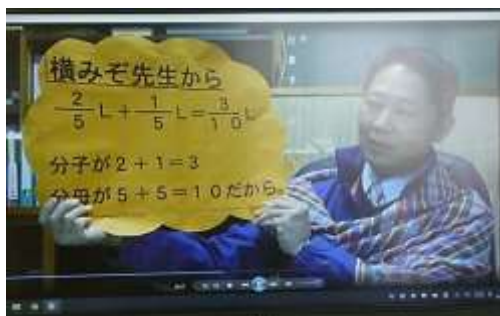 横みぞ先生から
2/5 L + 1/5 L = 3/10 L
分子が2+1=3
分母が5+5=10だから。